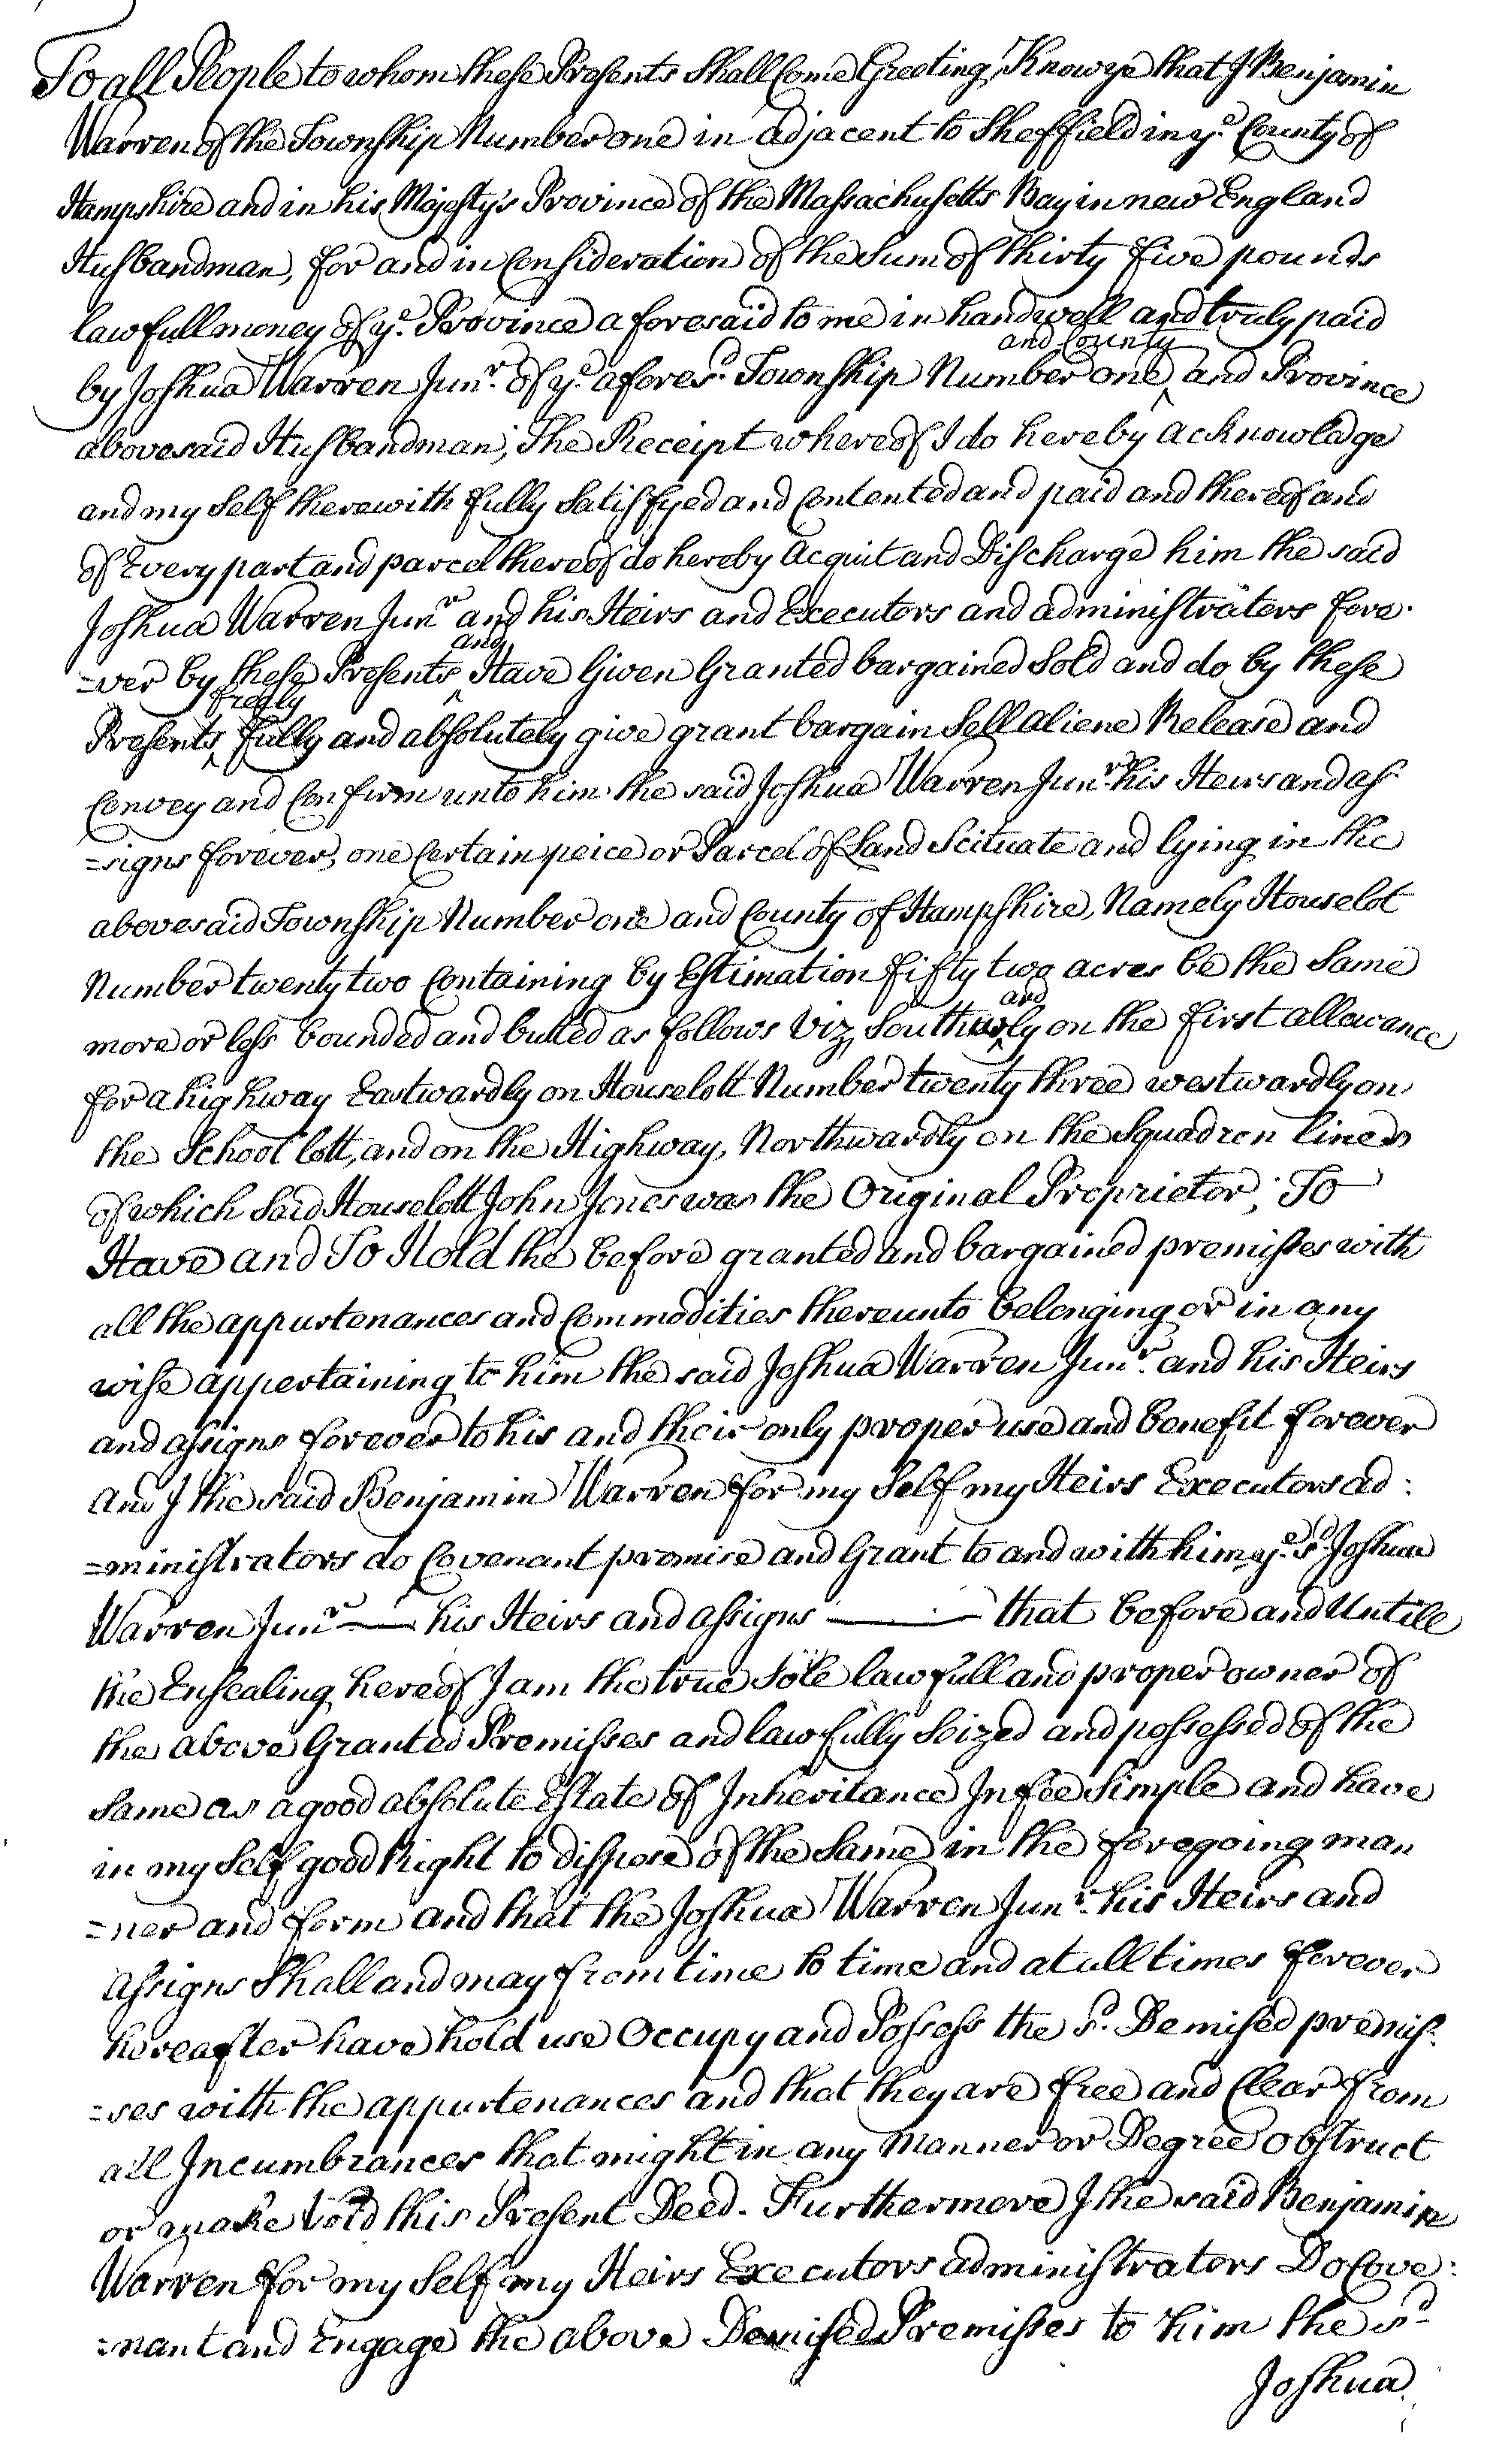 To all People to whom these Presents Shall Come Greeting, Know ye that I Benjamin
Warren of the Township Number one in adjacent to Sheffield in ye. County of
Hampshire and in his Majesty's Province of the Massachusetts Bay in new England
Husbandman, for and in Consideration of the Sum of thirty five pounds
lawfull money of ye. Province aforesaid to me in hand well and truly paid
and County
by Joshua Warren Junr. of ye. afores.d Township Number one ‸ and Province
abovesaid Husbandman; The Receipt whereof I do hereby acknowledge
and my Self therewith fully Satisfyed and Contented and paid and thereof and
of Every part and parcel thereof do hereby Acquit and Discharge him the said
Joshua Warren Junr and his Heirs and Executors and administraters fore:
and
=ver by these Presents ‸ Have Given Granted bargained Sold and do by these
freely
Presents ‸ fully and absolutely give grant bargain Sell aliene Release and
Convey and Confirm unto him the said Joshua Warren Junr. his Heirs and as:
=signs forever, one Certain peice or Parcel of Land Scituate and lying in the
abovesaid Township Number one and County of Hampshire, Namely Houselot
Number twenty two Containing by Estimation fifty two acres be the Same
and
more or less bounded and butted as follows Viz, Southerly ‸ on the first allowance
for a highway Eastwardly on Houselott Number twenty three westwardly on
the School lott, and on the Highway, Northwardly on the Squadron lines
of which Said Houselott John Jones was the Original Proprietor; To
Have and To Hold the before granted and bargained premisses with
all the appurtenances and Commodities thereunto belonging or in any
wise appertaining to him the said Joshua Warren Junr. and his Heirs
and assigns forever to his and their only proper use and benefit forever
And I the said Benjamin Warren for my Self my Heirs Executors ad:
=ministrators do Covenant promise and Grant to and with him ye. sd. Joshua
Warren Junr — his Heirs and assigns — that before and Untill
the Ensealing hereof I am the true Sole lawfull and proper owner of
the above Granted Premisses and lawfully Seized and possessed of the
Same as a good absolute Estate of Inheritance In fee Simple and have
in my Self good Right to dispose of the Same in the foregoing man
=ner and form and that the Joshua Warren Junr. his Heirs and
Assigns Shall and may from time to time and at all times forever
hereafter have hold use Occupy and Possess the sd. Demised premis:
=ses with the appurtenances and that they are free and Clear from
all Incumbrances that might in any Manner or Degree obstruct
or make Void this Present Deed. Furthermore I the said Benjamin
Warren for my Self my Heirs Executors administrators Do Cove:
=nant and Engage the above Demised Premisses to him the sd
Joshua